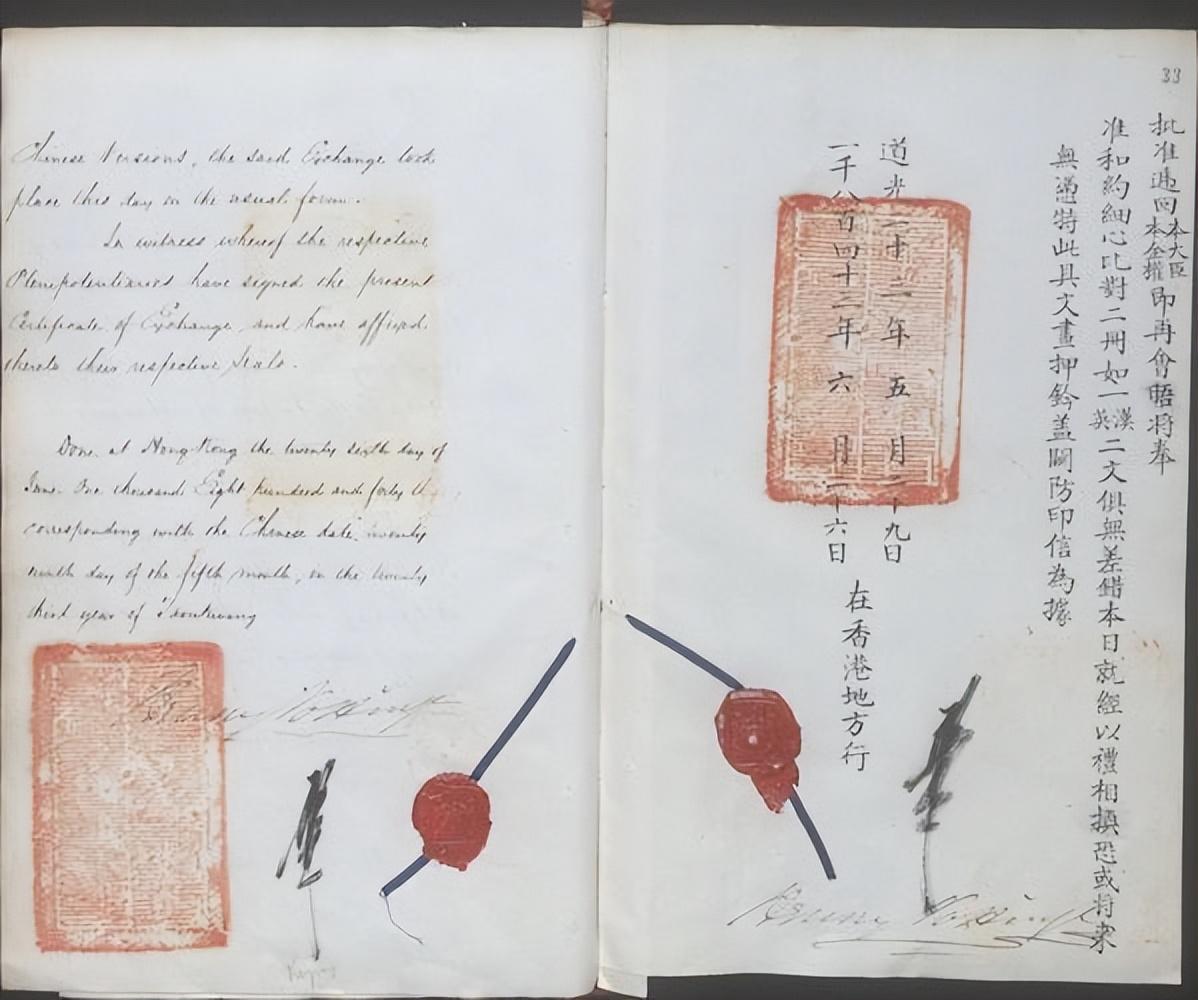 Chinese Versions, the said Exchange took
place this day in the usual form.
In witness whereof the respective
Plenipotentiaries have signed the present
Certificate of Exchange and have affixed
thereto their respective Seals.
Done at Hong Kong the twenty sixth day of
June One thousand Eight hundred and forty
corresponding with the Chinese date, twenty
ninth day of the fifth month, in the twenty
third year of Taoukwang
Henry Pottinger
33
批准遞回本大臣本全權即再會晤將奉
准和約細心比對二冊如一漢英二文俱無差錯本日就經以禮相換恐或將來
無憑特此具文畫押鈐盖關防印信為據
道光二十三年五月二十九日
一千八百四十三年六月二十六日
在香港地方行
Henry Pottinger